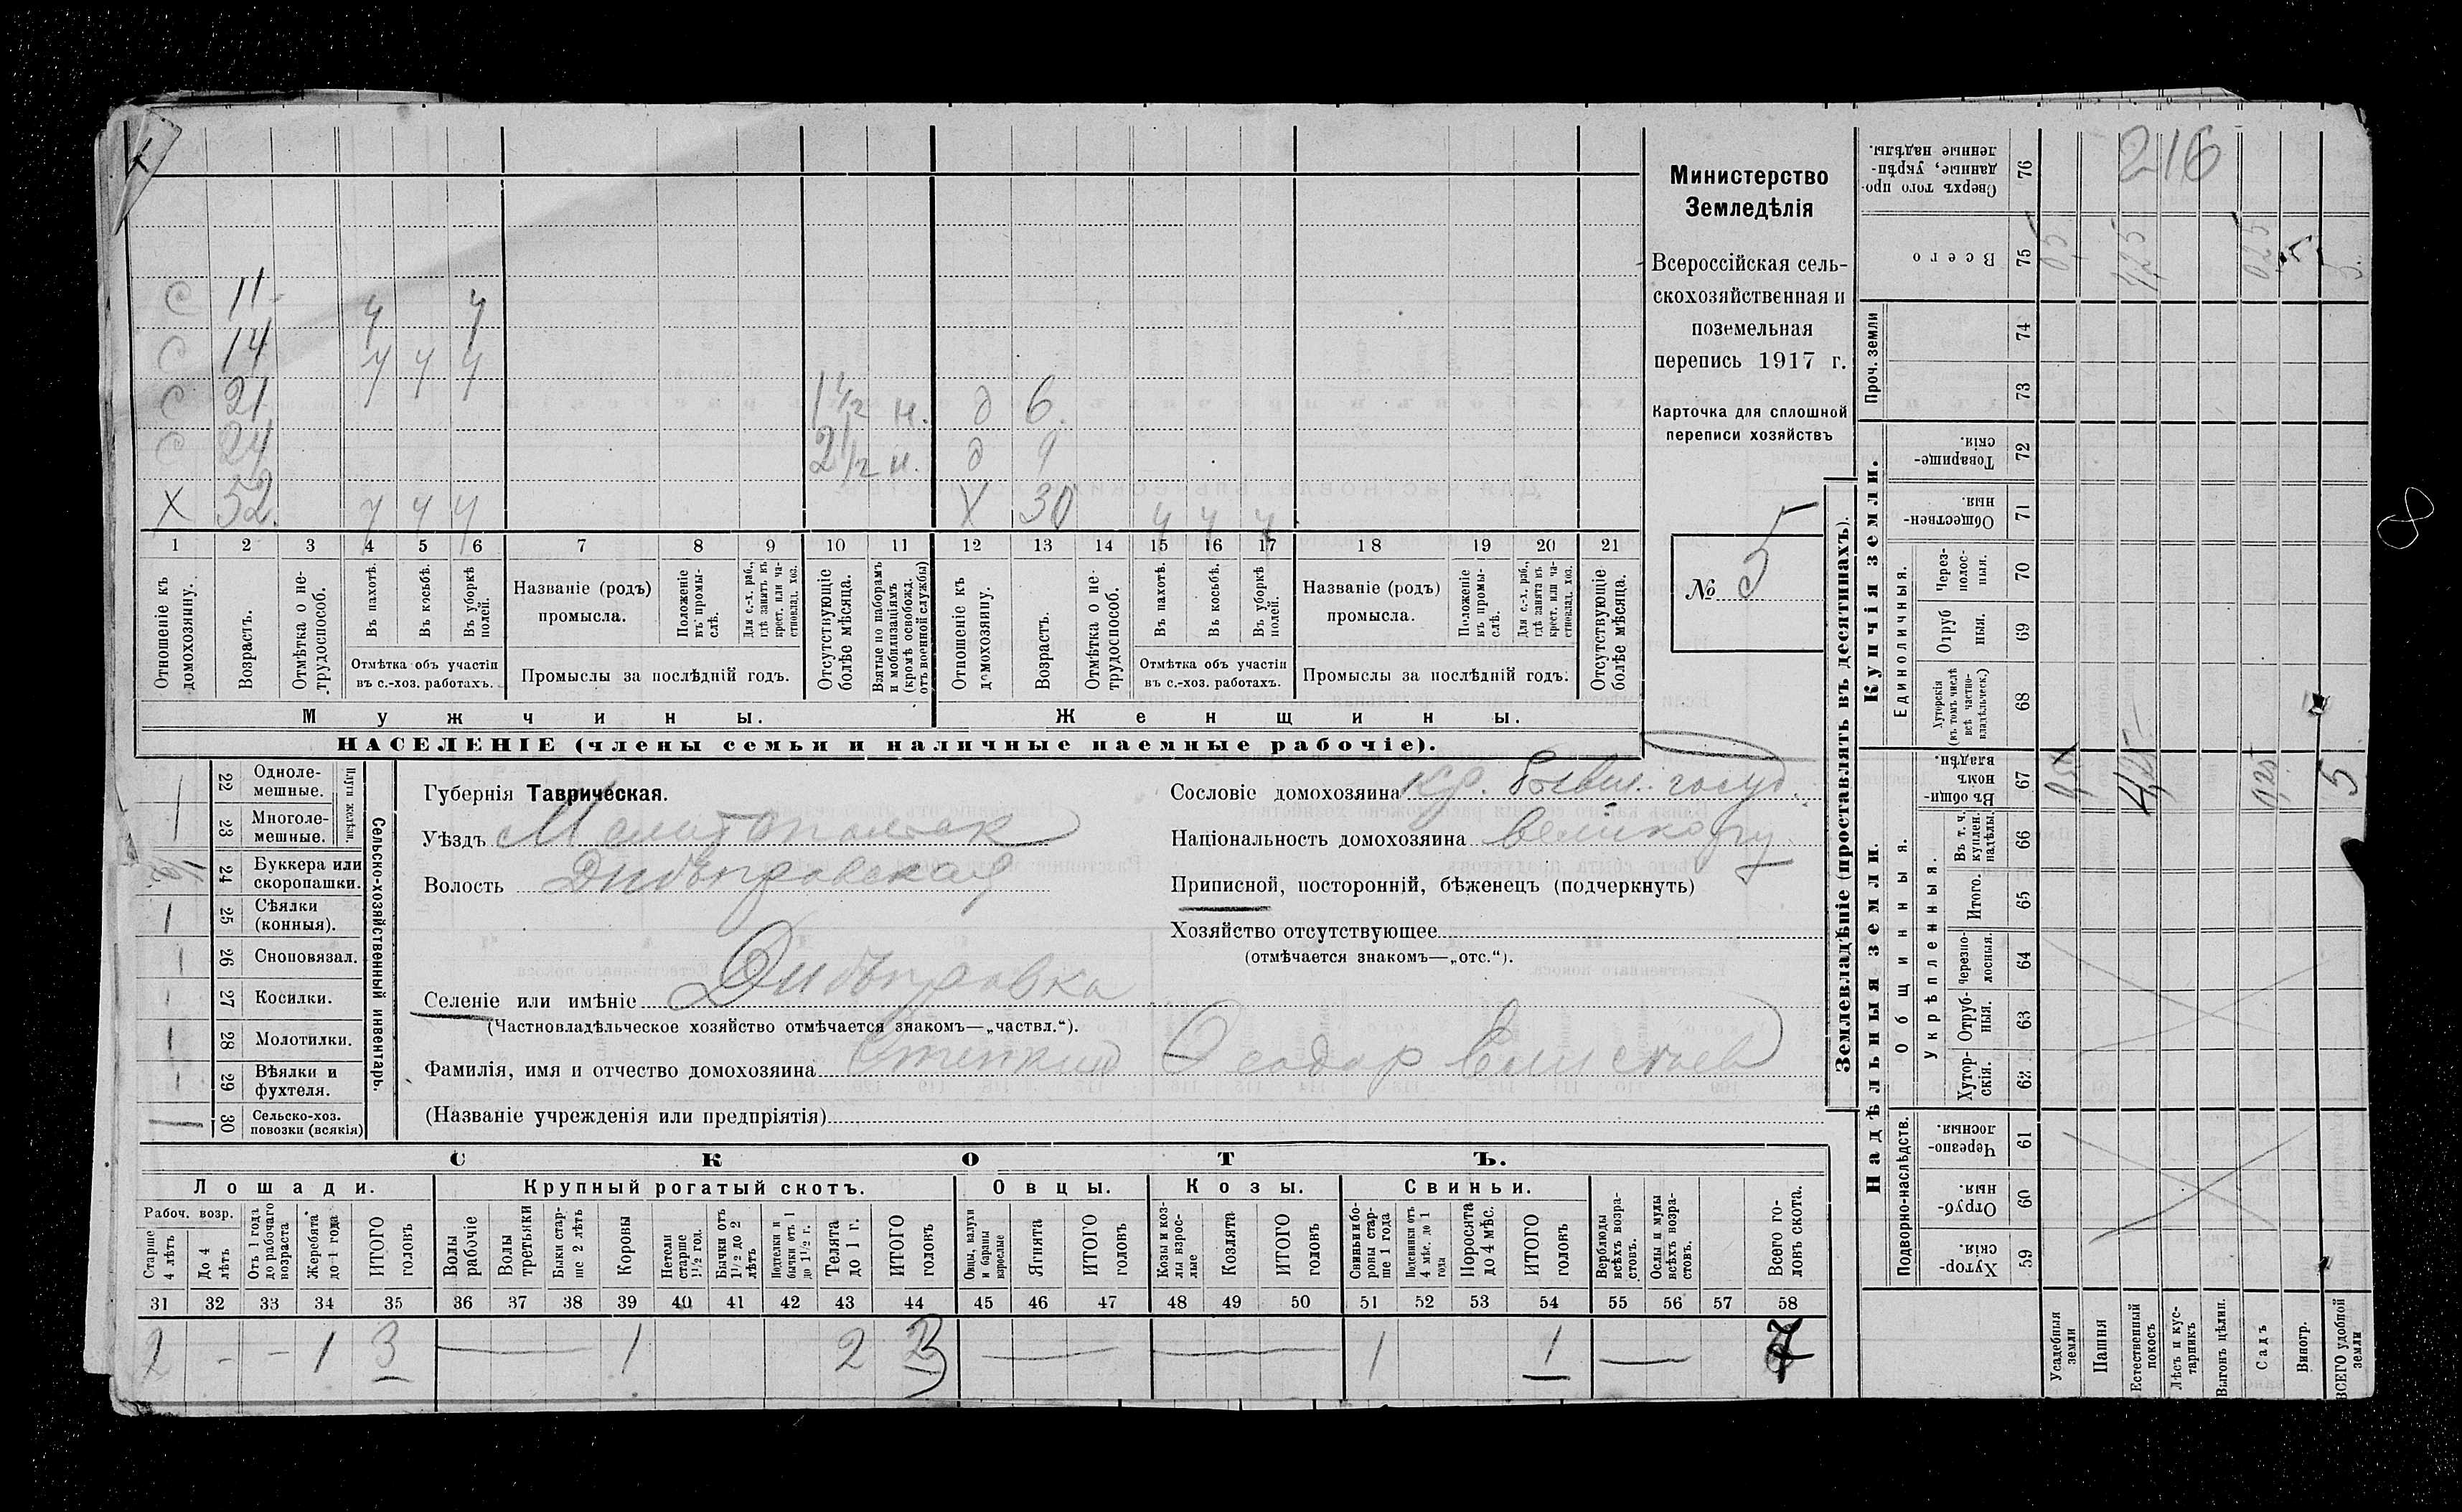 216
С 11 4 4
С 14 4 4 4
С 21 1 1/2 н. д 6.
С 24 2 1/2 н. д 9
Х 52. 4 4 4 Х 30 4 4 4
1 2 3 4 5 6 7 8 9 10 11 12 13 14 15 16 17 18 19 20 21
Отношеніе къ домохозяину.
Возрастъ.
Отмѣтка о нетрудоспособ.
Въ пахотѣ.
Въ косьбѣ.
Въ уборкѣ полей.
Отмѣтка объ участіи
въ с.-хоз. работахъ.
Названіе (родъ)
промысла.
Положеніе въ промыслѣ.
Для с.-х. раб., гдѣ занятъ въ крест. или частновлад. хоз.
Промыслы за послѣдній годъ.
Отсутствующіе болѣе мѣсяца.
Взятые по наборамъ и мобилизаціямъ (кромѣ освобожд. отъ военной службы)
Отношеніе къ домохозяину.
Возрастъ.
Отмѣтка о нетрудоспособ.
Въ пахотѣ.
Въ косьбѣ.
Въ уборкѣ полей.
Отмѣтка объ участіи
въ с.-хоз. работахъ.
Названіе (родъ)
промысла.
Положеніе въ промыслѣ.
Для с.-х. раб., гдѣ занята въ крест. или частновлад. хоз.
Промыслы за послѣдній годъ.
Отсутствующіе болѣе мѣсяца.
Мужчины.
Женщины.
НАСЕЛЕНІЕ (члены семьи и наличные наемные рабочіе).
Министерство
Земледѣлія
Всероссійская сель-
скохозяйственная и
поземельная
перепись 1917 г.
Карточка для сплошной
переписи хозяйствъ
№ 5
Сельско-хозяйственный инвентарь.
Плуги желѣзн.
22 Одноле-
мешные.
1 23 Многоле-
мешные.
24 Буккера или
скоропашки.
1 25 Сѣялки
(конныя).
1 26 Сноповязал.
1 27 Косилки.
1 28 Молотилки.
1 29 Вѣялки и
фухтеля.
1 30 Сельско-хоз.
повозки (всякія)
Губернія Таврическая.
Уѣздъ Мелитопольск
Волость Днѣпровская
Селеніе или имѣніе Днѣпровка
(Частновладѣльческое хозяйство отмѣчается знакомъ—„частвл.“).
Фамилія, имя и отчество домохозяина Степкин Феодор Елисеев
(Названіе учрежденія или предпріятія)
Сословіе домохозяина кр. бывш. госуд.
Національность домохозяина великору
Приписной, посторонній, бѣженецъ (подчеркнуть)
Хозяйство отсутствующее
(отмѣчается знакомъ—„отс.“).
СКОТЪ.
Лошади.
Крупный рогатый скотъ.
Овцы.
Козы.
Свиньи.
Рабоч. возр.
Старше 4 лѣтъ
До 4 лѣтъ
Отъ 1 года до рабочаго возраста
Жеребята до 1 года
ИТОГО головъ
Волы рабочіе
Волы третьяки
Быки старше 2 лѣтъ
Коровы
Нетели старше 1 1/2 год.
Бычки отъ 1 1/2 до 2 лѣтъ
Подтелки и бычки отъ 1 до 1 1/2 г.
Телята до 1 г.
ИТОГО головъ
Овцы, валухи и бараны взрослые
Ягнята
ИТОГО головъ
Козы и козлы взрослые
Козлята
ИТОГО головъ
Свиньи и боровы старше 1 года
Подсвинки отъ 4 мѣс. до 1 года
Поросята до 4 мѣс.
ИТОГО головъ
Верблюды всѣхъ возрастовъ.
Ослы и мулы всѣхъ возрастовъ.
Всего головъ скота.
31 32 33 34 35 36 37 38 39 40 41 42 43 44 45 46 47 48 49 50 51 52 53 54 55 56 57 58
2 - - 1 3 — 1 2 3 — — 1 1 — 7
Землевладѣніе (проставлять въ десятинахъ).
Надѣльныя земли.
Купчія земли.
Проч. земли
Подворно-наслѣдств.
Общинныя.
Укрѣпленныя.
Единоличныя.
Хутор-
скія. 59
Отруб-
ныя. 60
Черезпо-
лосныя. 61
Хутор-
скія. 62
Отруб-
ныя. 63
Черезпо-
лосныя. 64
Итого. 65
Въ т. ч. куплен. надѣлы. 66
Въ общинномъ владѣн. 67
0,5 4,25 0,25 5
Хуторскія (въ томъ числѣ всѣ частновладѣльческ.) 68
Отрубныя. 69
Черезполосныя. 70
Общественныя. 71
Товарищескія. 72
73
74
Всего 75
0,5 4,25 0,25 5
Сверхъ того проданные, укрѣпленные надѣлы. 76
Усадебныя земли
Пашня
Естественный покосъ
Лѣсъ и кустарникъ
Выгонъ цѣлин.
Садъ
Виногр.
ВСЕГО удобной земли
8